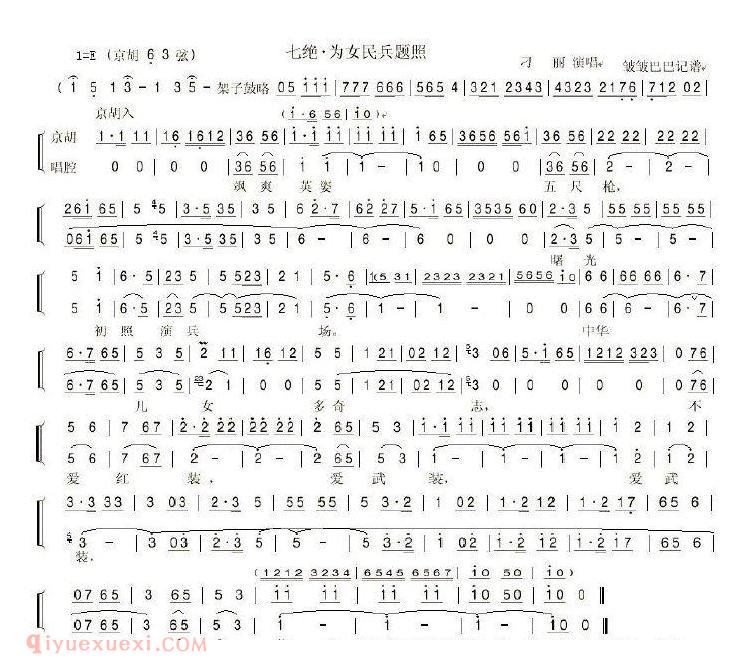 七绝·为女民兵题照
1=E (京胡 6 3 弦) 刁 丽 演唱 皱皱巴巴记谱
( i 5 1 3 - 1 3 5 - 架子鼓略 05 iii | 777 666 | 565 4 | 321 2343 | 4323 2176 | 712 02 |
京胡入 ( i·6 56 | i0 )
京胡 1·1 11 | 16 1612 | 36 56 | i·i ii | ii ii | i 65 | 3656 56i | 6 56 | 22 22 | 22 22 |
唱腔 0 0 | 0 0 | 36 56 | i - | i - | 0 0 | 0 0 | 36 56 | 2 - | 2 - |
飒 爽 英 姿 五 尺 枪,
26i 65 | 5 5 | 3·5 35 | 35 5 | 6 2·7 | 62 27 | i·i 65 | 3535 60 | 2·3 5 | 55 55 | 55 55 |
06i 65 | 5 5 | 3·5 35 | 3 5 | 6 - | 6 - | 6 0 | 0 0 | 2·3 5 | 5 - | 5 - |
曙 光
5 i | 6·5 | 23 5 | 5 523 | 2 1 | 5·6 | i(5 31 | 2323 2323 | 5656 i0 | 6 6 | 66 66 | 6·7 |
5 i | 6·5 | 23 5 | 5 523 | 2 1 | 5·6 | 1 - | 1 - | 0 0 | 6 6 | 6 - | 6·7 |
初 照 演 兵 场。 中华
6·7 65 | 5 3 5 | 2 11 | 16 12 | 3·5 | 1 21 | 02 12 | 3 06 | 5·i 65 | 1212 323 | 0 76 |
6·7 65 | 5 3 5 | 2 1 | 0 0 | 3·5 | 1 21 | 02 12 | 3 0 | 0 0 | 0 0 | 0 76 |
儿 女 多 奇 志, 不
5 6 | 7 67 | 2·2 22 | 22 22 | 2 65 | 5 3 | i·i ii | ii ii | i·i ii | ii ii | 5 3 |
5 6 | 7 67 | 2 - | 2 - | 2 65 | 5 3 | 1 - | 1 - | 1 - | 1 - | 5 3 |
爱 红 装, 爱 武 装, 爱 武
3·3 33 | 3 03 | 2·3 5 | 55 55 | 5 3·2 | 1 02 | 1·2 12 | 1·2 17 | 65 65 |
3 - | 3 03 | 2·3 5 | 5 - | 5 3·2 | 1 02 | 12 12 | 1·2 17 | 65 65 |
装,
(1212 3234 | 4565 4565 | 6567 | i0 50 | i0 )
07 65 | 3·65 | 5 6 | 2 7 | 6·5 | ii ii | ii ii | ii | i0 50 | i0 0 ‖
07 65 | 3·65 | 5 6 | 2 7 | 6·5 | 1 - | 1 - | 1 - | i0 50 | i0 0 ‖
qiyuexuexi.com(七月学习)